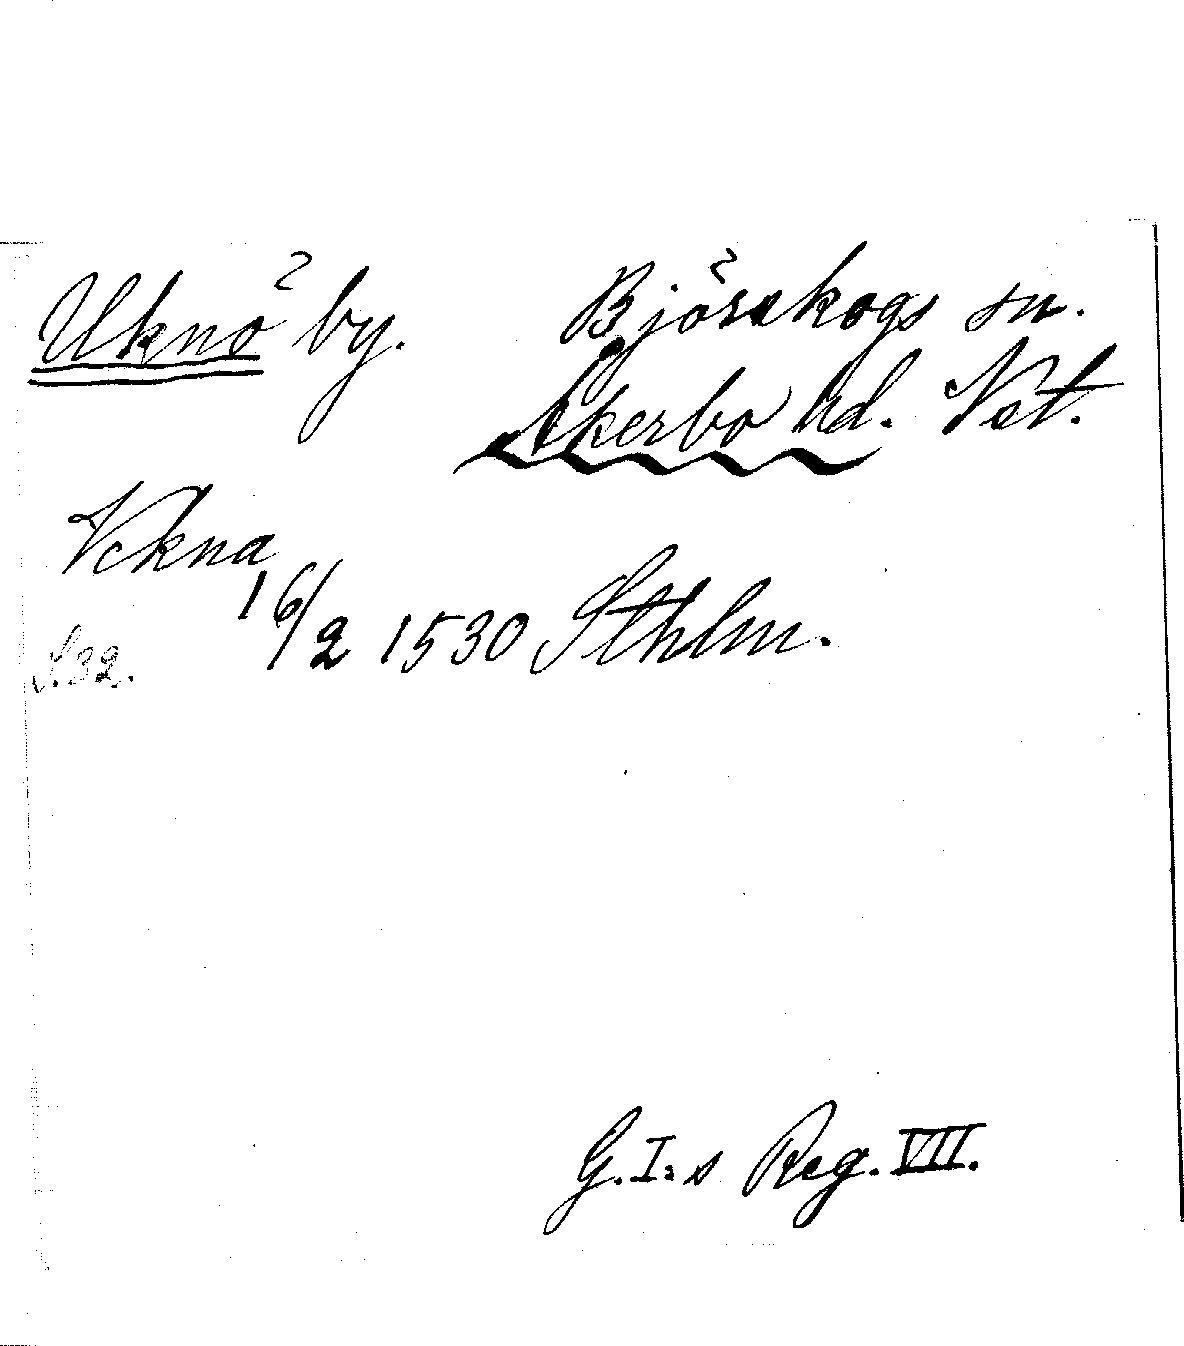 Uknö by. Björskogs sn.
Åkerbo hd. Vst.
Vckna
16/2 1530 Sthlm.
S.32.
G.I:s Reg. VII.